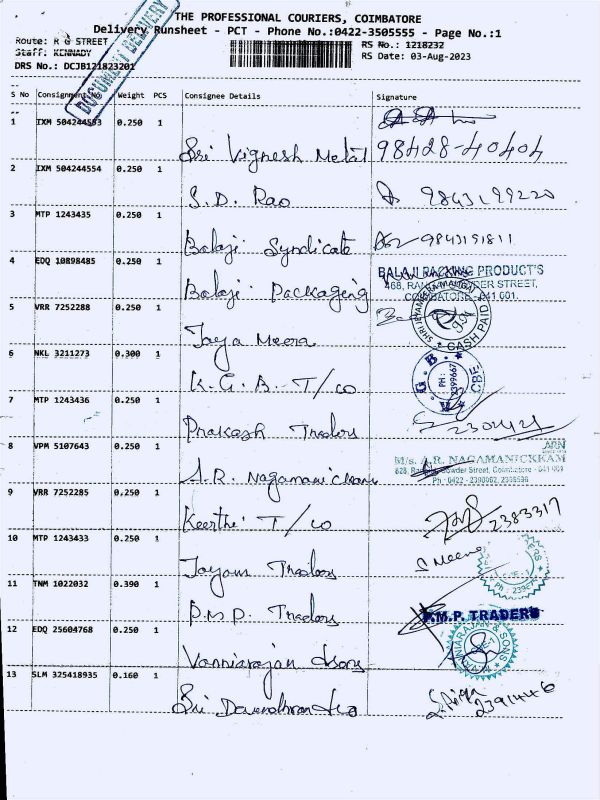 THE PROFESSIONAL COURIERS, COIMBATORE
Delivery Runsheet - PCT - Phone No.:0422-3505555 - Page No.:1
Route: R G STREET
Staff: KENNADY
DRS No.: DCJB121823201
RS No.: 1218232
RS Date: 03-Aug-2023
DOCUMENT DELIVERY
S No Consignment No Weight PCS Consignee Details Signature
1 IXM 504244553 0.250 1
Sri Vignesh Metal 98428-40404
2 IXM 504244554 0.250 1
S.D. Rao 9843199220
3 MTP 1243435 0.250 1
Balaji Syndicate 9843151811
4 EDQ 10898485 0.250 1
Balaji Packaging
BALAJI PACKING PRODUCT'S
468, STREET,
COIMBATORE - 641 001.
5 VRR 7252288 0.250 1
Jaya Meera
CASH PAID
6 NKL 3211273 0.300 1
K.G.B. T/co
PH 2399667
CBE
7 MTP 1243436 0.250 1
Prakash Traders
8 VPM 5107643 0.250 1
A.R. Nagamanickam
ARN
M/s. A.R. NAGAMANICKKAM
Street, Coimbatore - 641 001
9 VRR 7252285 0.250 1
Keerthi T/co 2383317
10 MTP 1243433 0.250 1
Jayam Traders S Meena
11 TNM 1022032 0.390 1
P.M.P. Traders
P.M.P. TRADERS
12 EDQ 25604768 0.250 1
Vanniarajan & Sons
VANNIARAJAN & SONS
13 SLM 325418935 0.160 1
Sri 2391446